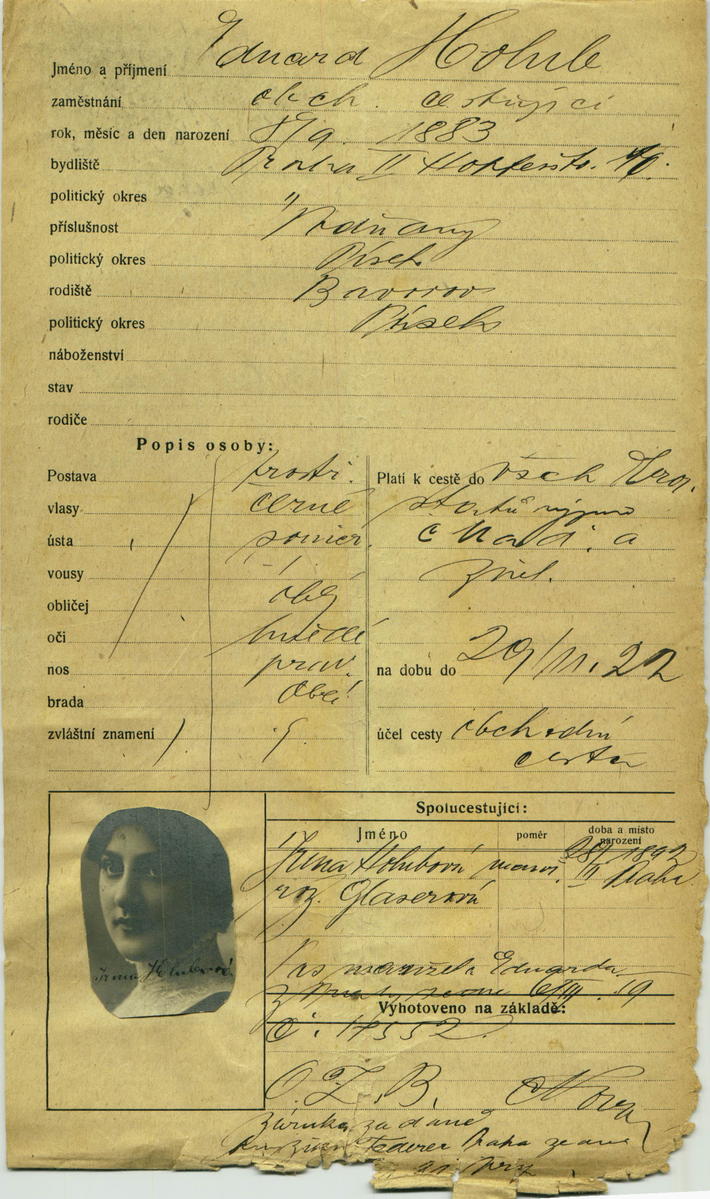 Jméno a příjmení Eduard Holub
zaměstnání obch. cestující
rok, měsíc a den narození 8/9. 1883
bydliště Praha II
politický okres "
příslušnost Vodňany
politický okres Písek
rodiště Bavorov
politický okres Písek
náboženství
stav
rodiče
Popis osoby:
Postava prostř.
vlasy černé
ústa souměr.
vousy -/-
obličej obl.
oči hnědé
nos prav.
brada obl.
zvláštní znamení
Platí k cestě do všech
států
a
na dobu do 29/11. 22
účel cesty obchodní
cesta
Spolucestující:
Jméno poměr doba a místo
narození
Irma Holubová 1892
roz. Glaserová II Praha
Irma Holubová
Pas manžela Eduarda
19
Vyhotoveno na základě:
Č. 17552.
O. Z. B.
Záruka za daně
Federer Praha